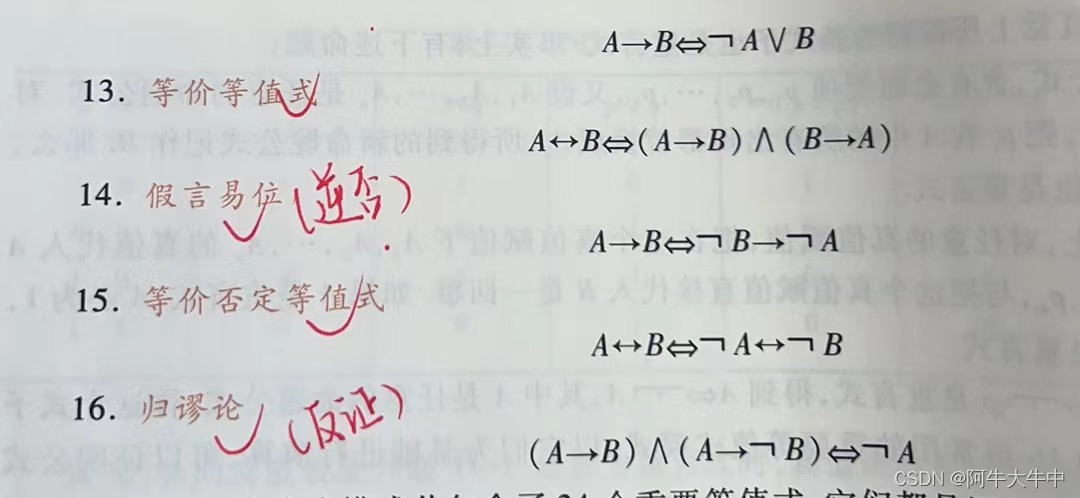 A→B⇔¬A∨B
13. 等价等值式
A↔B⇔(A→B)∧(B→A)
14. 假言易位(逆否)
A→B⇔¬B→¬A
15. 等价否定等值式
A↔B⇔¬A↔¬B
16. 归谬论 (反证)
(A→B)∧(A→¬B)⇔¬A
CSDN @阿牛大牛中